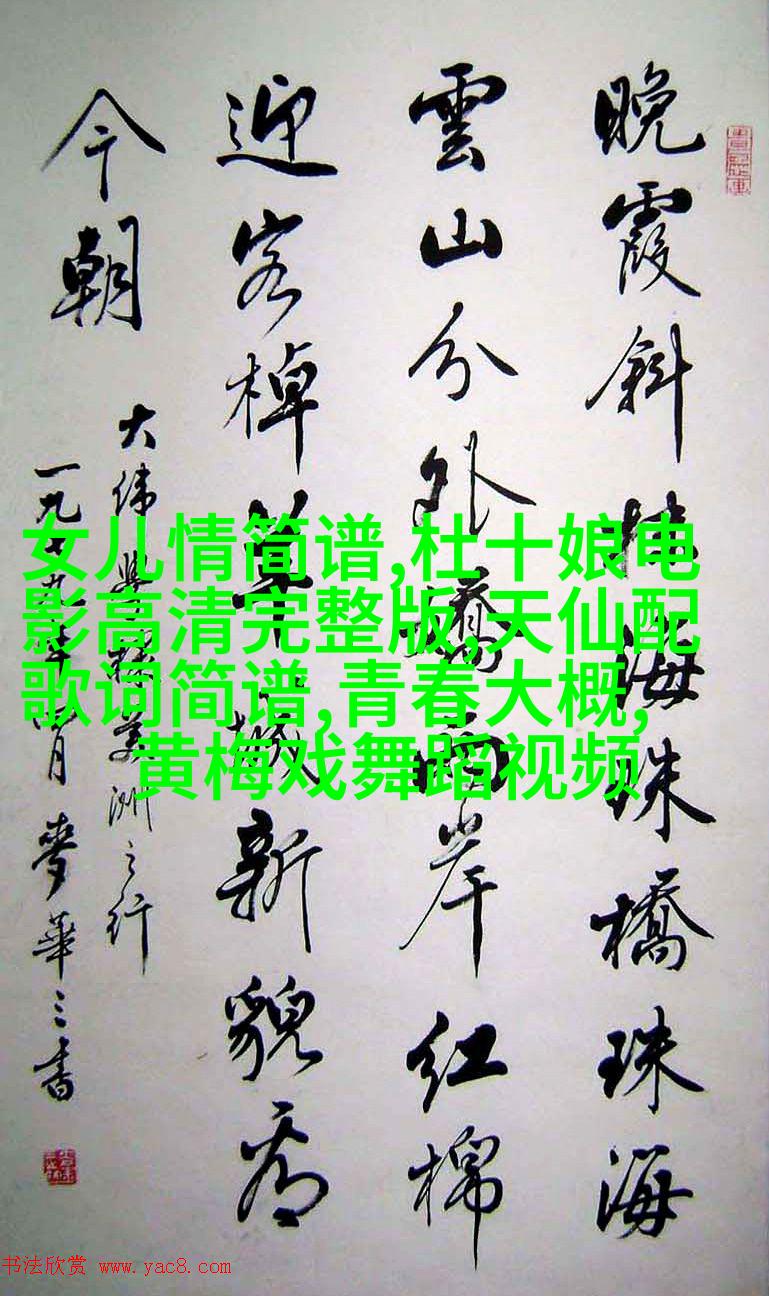 晚霞斜抹海珠橋珠海
雲山分外嬌兩岸紅棉
迎客棹羊城新貌看
今朝
大緯學棣美洲之行
一九七九年月麥華三書
女儿情简谱,杜十娘电
影高清完整版,天仙配
歌词简谱,青春大概,
黄梅戏舞蹈视频
书法欣赏 www.yac8.com